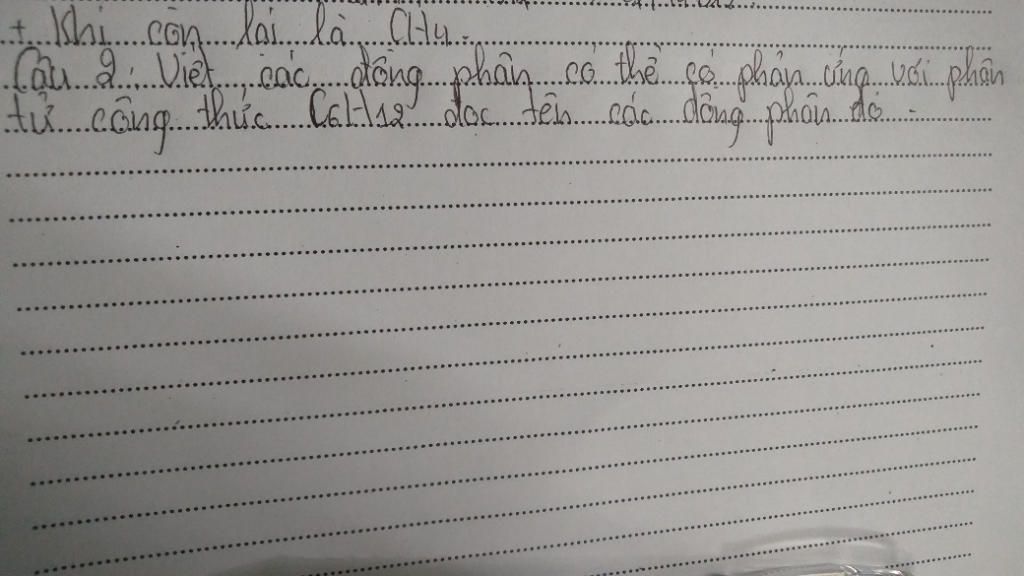 + Khí còn lại là CH4.
Câu 2: Viết các đồng phân có thể có phản ứng với phân
tử công thức C6H12 đọc tên các đồng phân đó.